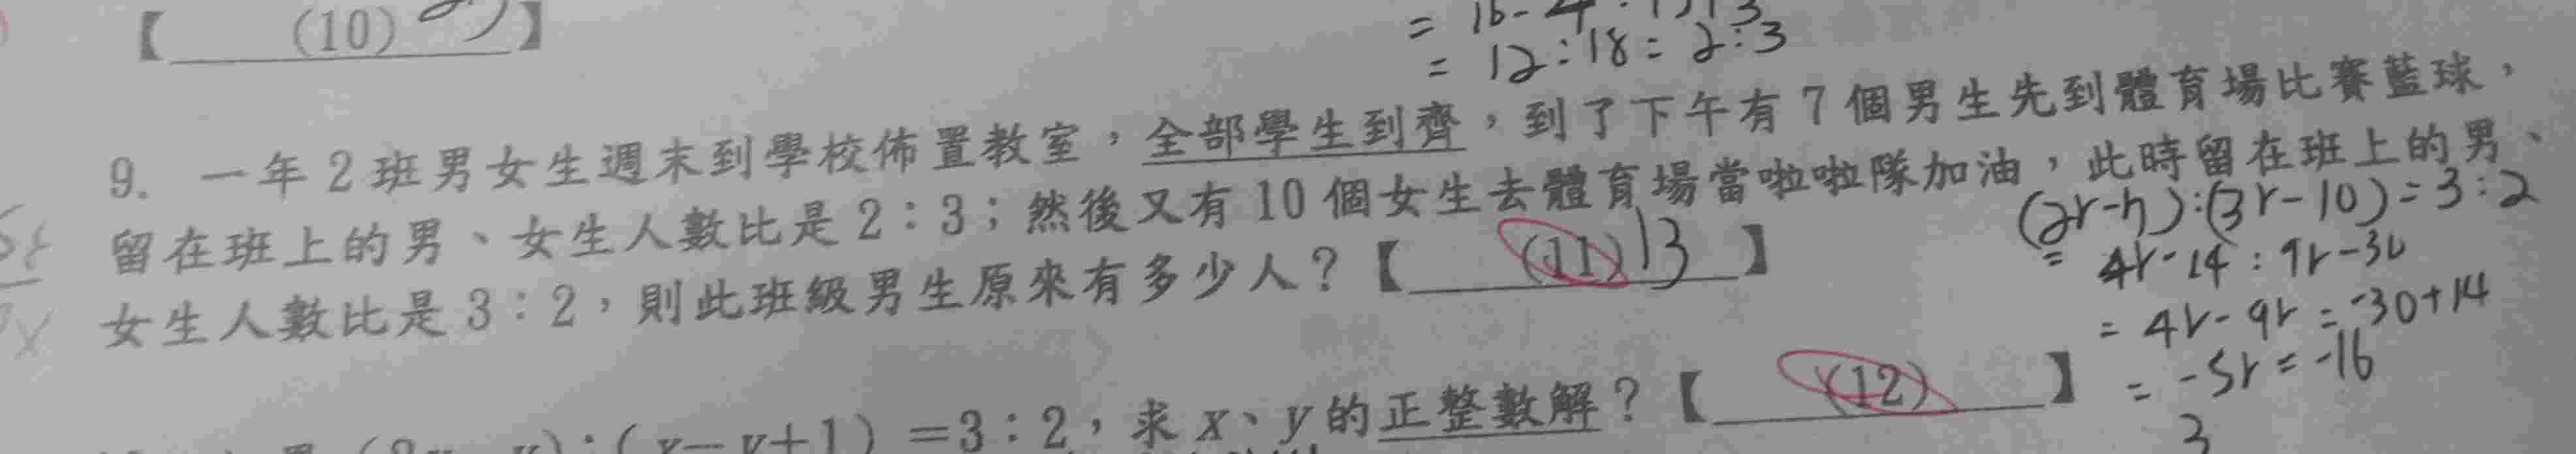 【 (10) 】
= 16-4:15+3
= 12:18 = 2:3
9. 一年2班男女生週末到學校佈置教室，全部學生到齊，到了下午有7個男生先到體育場比賽藍球，
留在班上的男、女生人數比是2：3；然後又有10個女生去體育場當啦啦隊加油，此時留在班上的男、
女生人數比是3：2，則此班級男生原來有多少人？【 (11) 13 】
(2r-7):(3r-10)=3:2
= 4r-14:9r-30
= 4r-9r=-30+14
= -5r=-16
3
=3：2，求x、y的正整數解？【 (12) 】